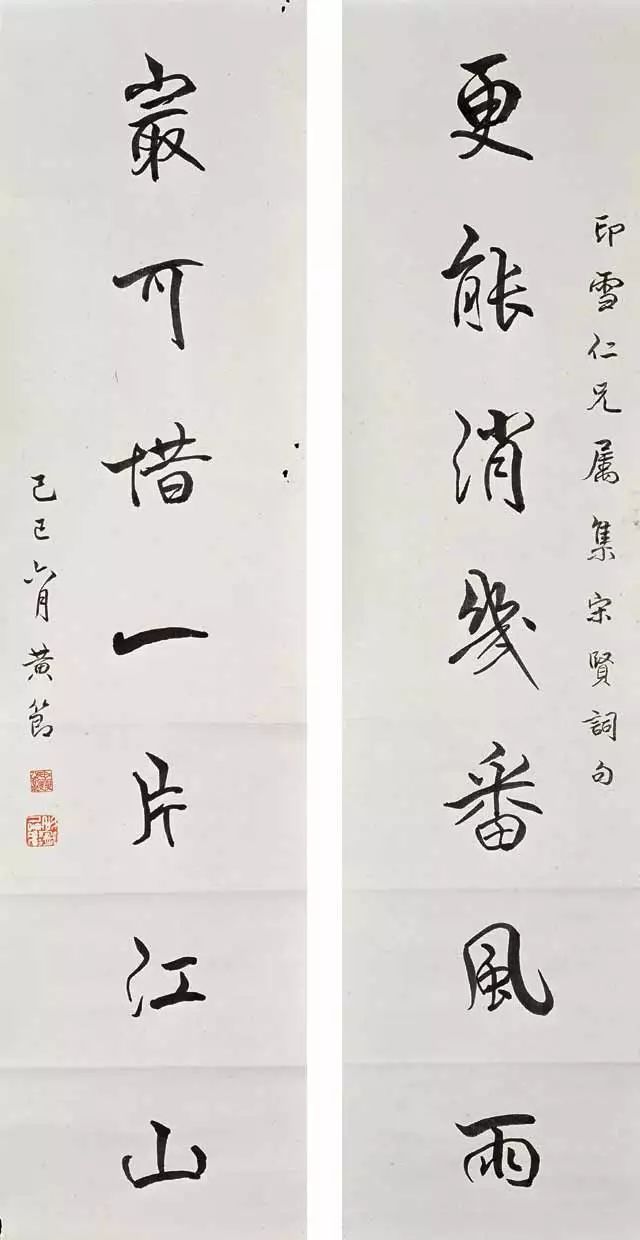 印雪仁兄属集宋賢詞句
更能消幾番風雨
最可惜一片江山
己巳六月黄節